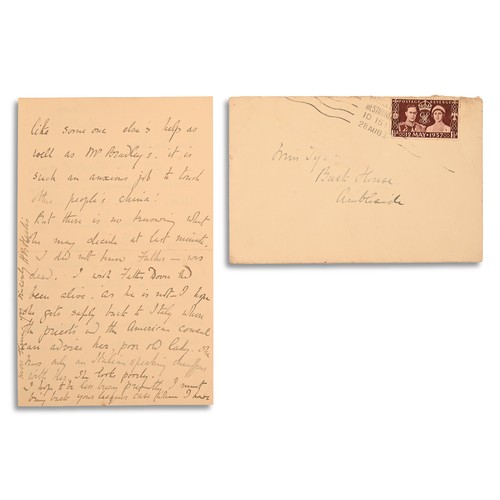 like some one else's help as
well as Mr Bradley's. it is
such an anxious job to touch
other people's china!
But there is no knowing what
she may decide at last minute.
I did not know Father – was
dead. I wish Father Down had
been alive. as he is not – I hope
she gets safely back to Italy where
the priests and the American consul
can advise her, poor old lady. She
has only an Italian speaking chauffeur
with her. She looks poorly.
I hope to be less busy presently, I must
bring back your case which I have
10 15
28 AUG
POSTAGE REVENUE
12 MAY 1937
Miss
Bush House
Ambleside